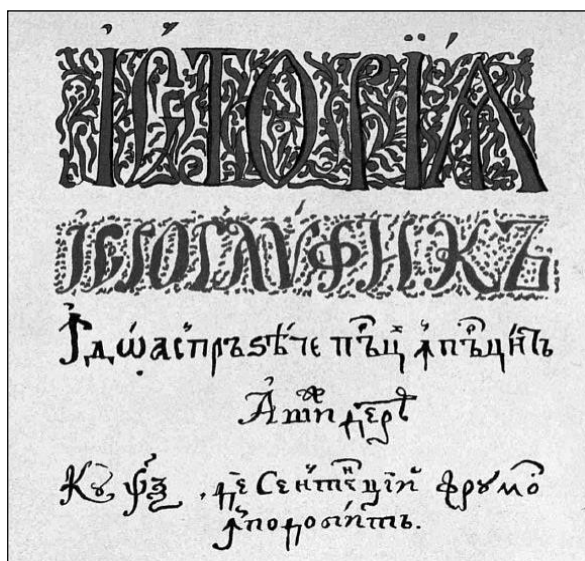 І҆СТОРІѦ
І҆ЄРОГЛѴФИКЪ
Ꙟ дѡаспръѕѣче пърц ꙟпърцитъ
Ашиждерѣ
Кꙋ ѱѯ, де Сентенций фрꙋмос
ꙟподобитъ.